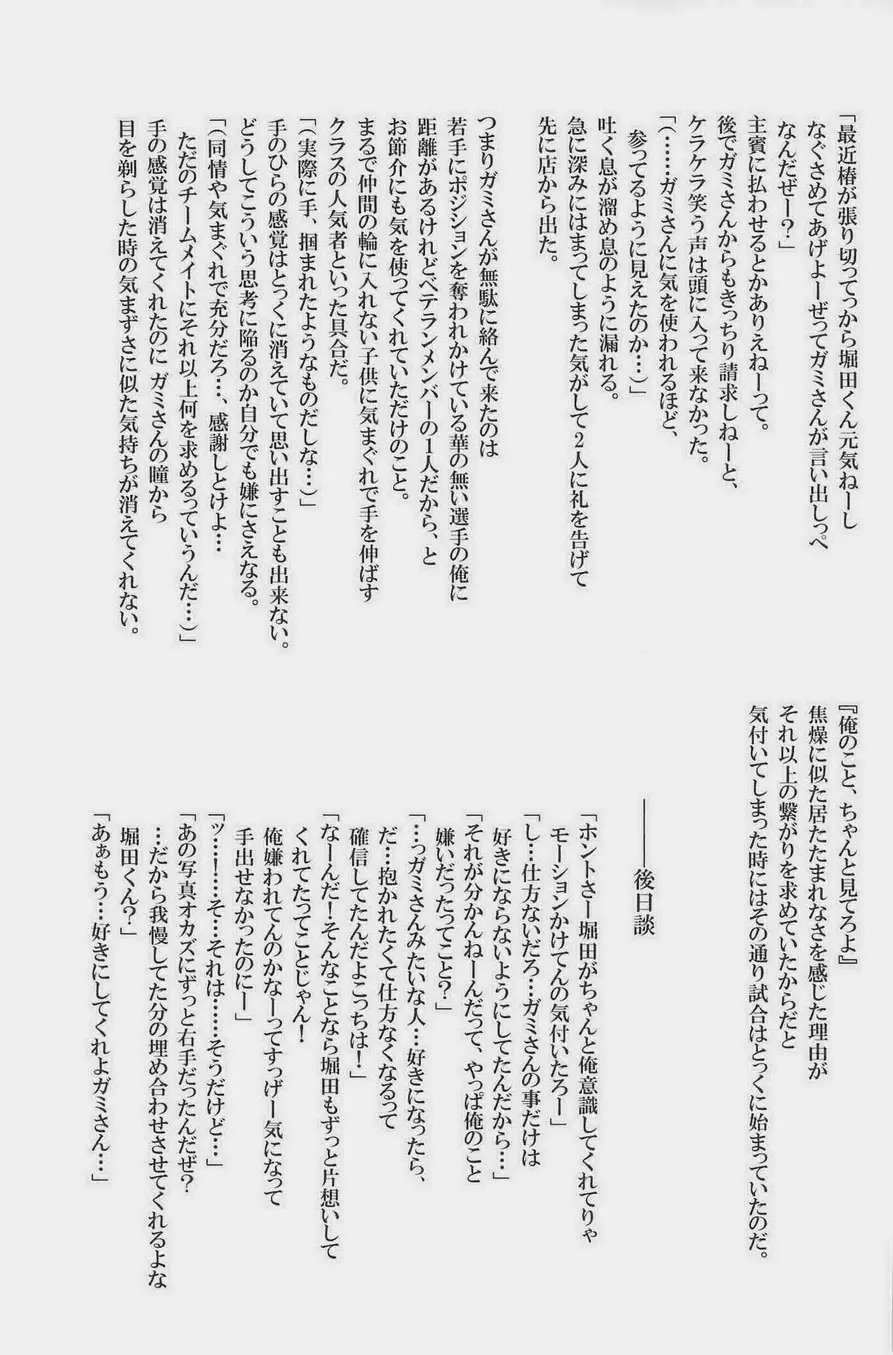 「最近椿が張り切ってっから堀田くん元気ねーし
なぐさめてあげよーぜってガミさんが言い出しっぺ
なんだぜー？」
主賓に払わせるとかありえねーって。
後でガミさんからもきっちり請求しねーと、
ケラケラ笑う声は頭に入って来なかった。
「（……ガミさんに気を使われるほど、
参ってるように見えたのか…）」
吐く息が溜め息のように漏れる。
急に深みにはまってしまった気がして2人に礼を告げて
先に店から出た。
つまりガミさんが無駄に絡んで来たのは
若手にポジションを奪われかけている華の無い選手の俺に
距離があるけれどベテランメンバーの1人だから、と
お節介にも気を使ってくれていただけのこと。
まるで仲間の輪に入れない子供に気まぐれで手を伸ばす
クラスの人気者といった具合だ。
「（実際に手、掴まれたようなものだしな…）」
手のひらの感覚はとっくに消えていて思い出すことも出来ない。
どうしてこういう思考に陥るのか自分でも嫌にさえなる。
「（同情や気まぐれで充分だろ…、感謝しとけよ…
ただのチームメイトにそれ以上何を求めるっていうんだ…）」
手の感覚は消えてくれたのに ガミさんの瞳から
目を剃らした時の気まずさに似た気持ちが消えてくれない。
『俺のこと、ちゃんと見てろよ』
焦燥に似た居たたまれなさを感じた理由が
それ以上の繋がりを求めていたからだと
気付いてしまった時にはその通り試合はとっくに始まっていたのだ。
――後日談
「ホントさー堀田がちゃんと俺意識してくれてりゃ
モーションかけてんの気付いたろー」
「し…仕方ないだろ…ガミさんの事だけは
好きにならないようにしてたんだから…」
「それが分かんねーんだって、やっぱ俺のこと
嫌いだったってこと？」
「…っガミさんみたいな人…好きになったら、
だ…抱かれたくて仕方なくなるって
確信してたんだよこっちは！」
「なーんだ！そんなことなら堀田もずっと片想いして
くれてたってことじゃん！
俺嫌われてんのかなーってすっげー気になって
手出せなかったのにー」
「ッ…！…そ…それは……そうだけど…」
「あの写真オカズにずっと右手だったんだぜ？
…だから我慢してた分の埋め合わせさせてくれるよな
堀田くん？」
「あぁもう…好きにしてくれよガミさん…」